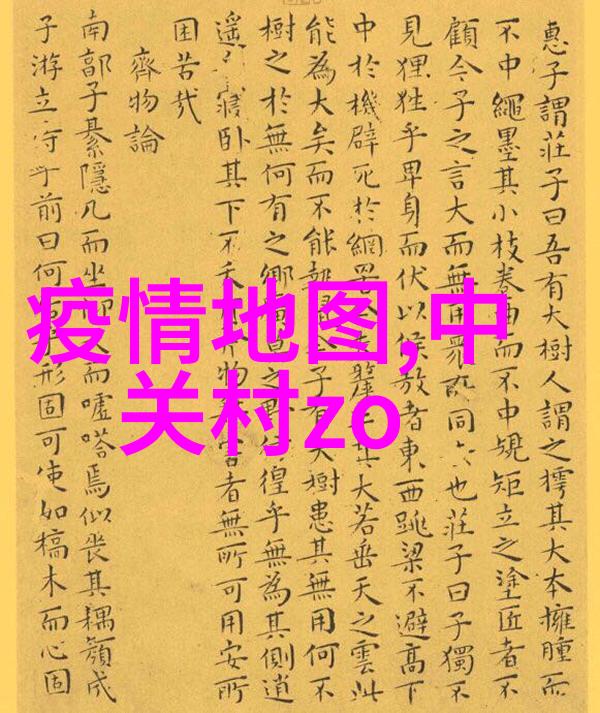 惠子謂莊子曰吾有大樹人謂之樗其大本擁腫而
不中繩墨其小枝卷曲而不中規矩立之塗匠者不
顧今子之言大而無用眾所同也莊子曰子獨不
見狸狌乎卑身而伏以候敖者東西跳梁不避高下
中於機辟死於網其大若垂天之雲此
能為大矣而不能子有大樹患其無用何不
樹之於無何有之鄉之野徨乎無為其側逍
遙寢臥其下不物害者無所可用安所
困苦哉
齊物論
南郭子綦隱几而坐而噓嗒焉似喪其耦顏成
子游立侍乎前曰何形固可使如槁木而心固
疫情地图,中
关村zo